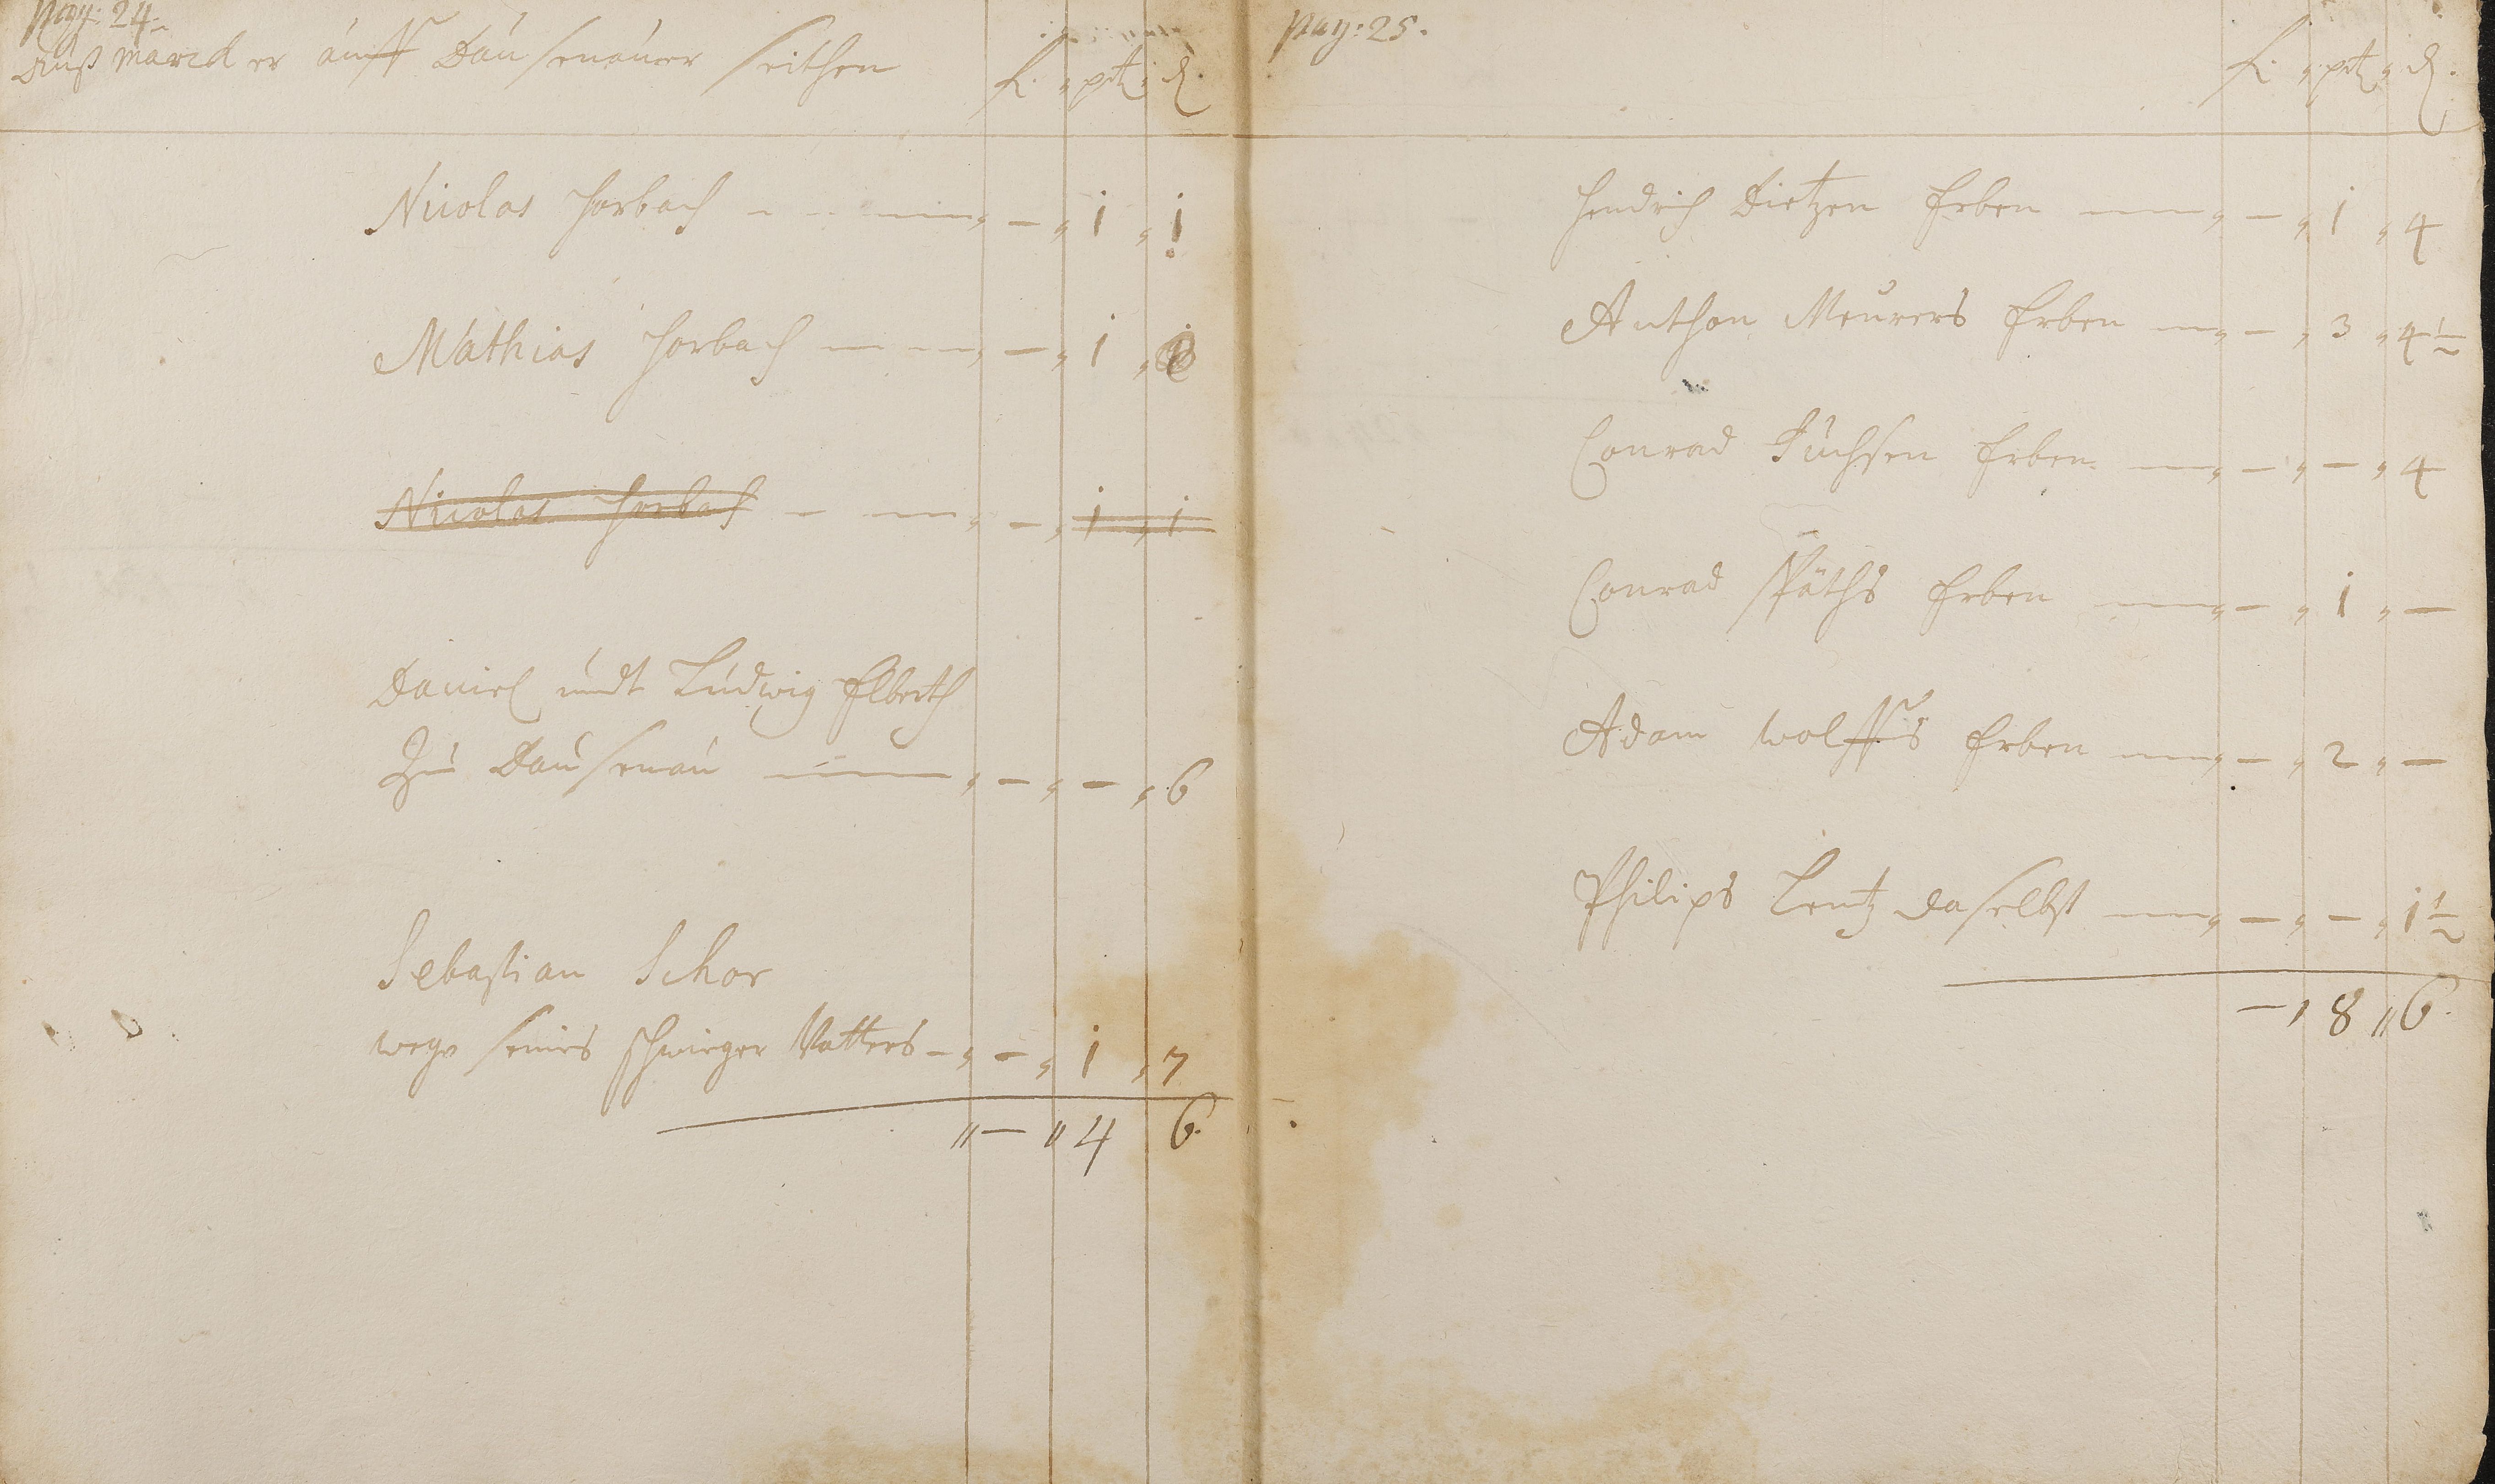 pag: 24.
Außmarcker auff Dausenauer seithen fl. " ptz " d.
Nicolas Horbach - - - " - " 1 " 1
Mathias Horbach - - " - " 1 " 1
Nicolas Horbach - - " - " 1 " 1
Daniel undt Ludwig Elberth
Zu Dausenau - " - " - " 6
Sebastian Schor
wegen seines schwieger Vatters - " - " 1 " 7
" - " 4 6.
pag: 25.
fl. " ptz " d.
Hendrich Dietzen Erben - " - " 1 " 4
Anthon Meurers Erben - " - " 3 " 4 ½
Conrad Fuchsen Erben - " - " - " 4
Conrad Späths Erben - " - " 1 " -
Adam Wolffs Erben - " - " 2 " -
Philips Lentz daselbst - " - " - " 1 ½
- " 8 " 6.